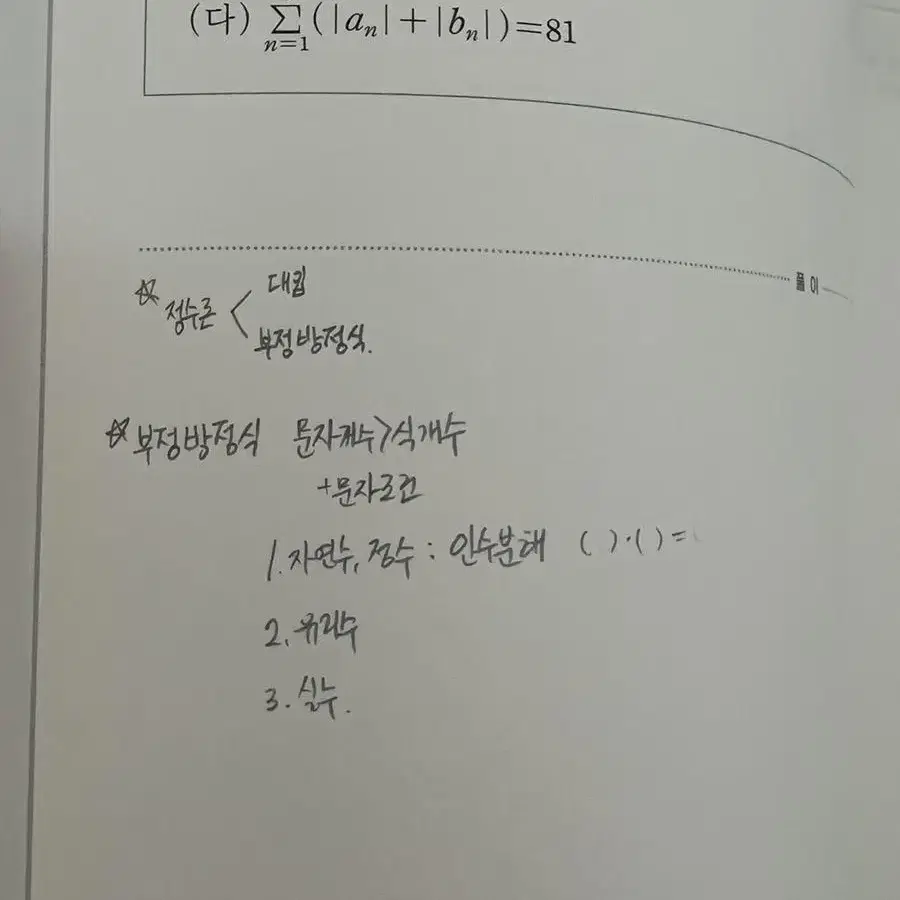 (다) ∑(|aₙ|+|bₙ|)=81
n=1
풀이
☆ 정수론 < 대입
부정방정식.
☆ 부정방정식 문자개수>식개수
+문자조건
1. 자연수, 정수 : 인수분해 ( )·( )=
2. 유리수
3. 실수.